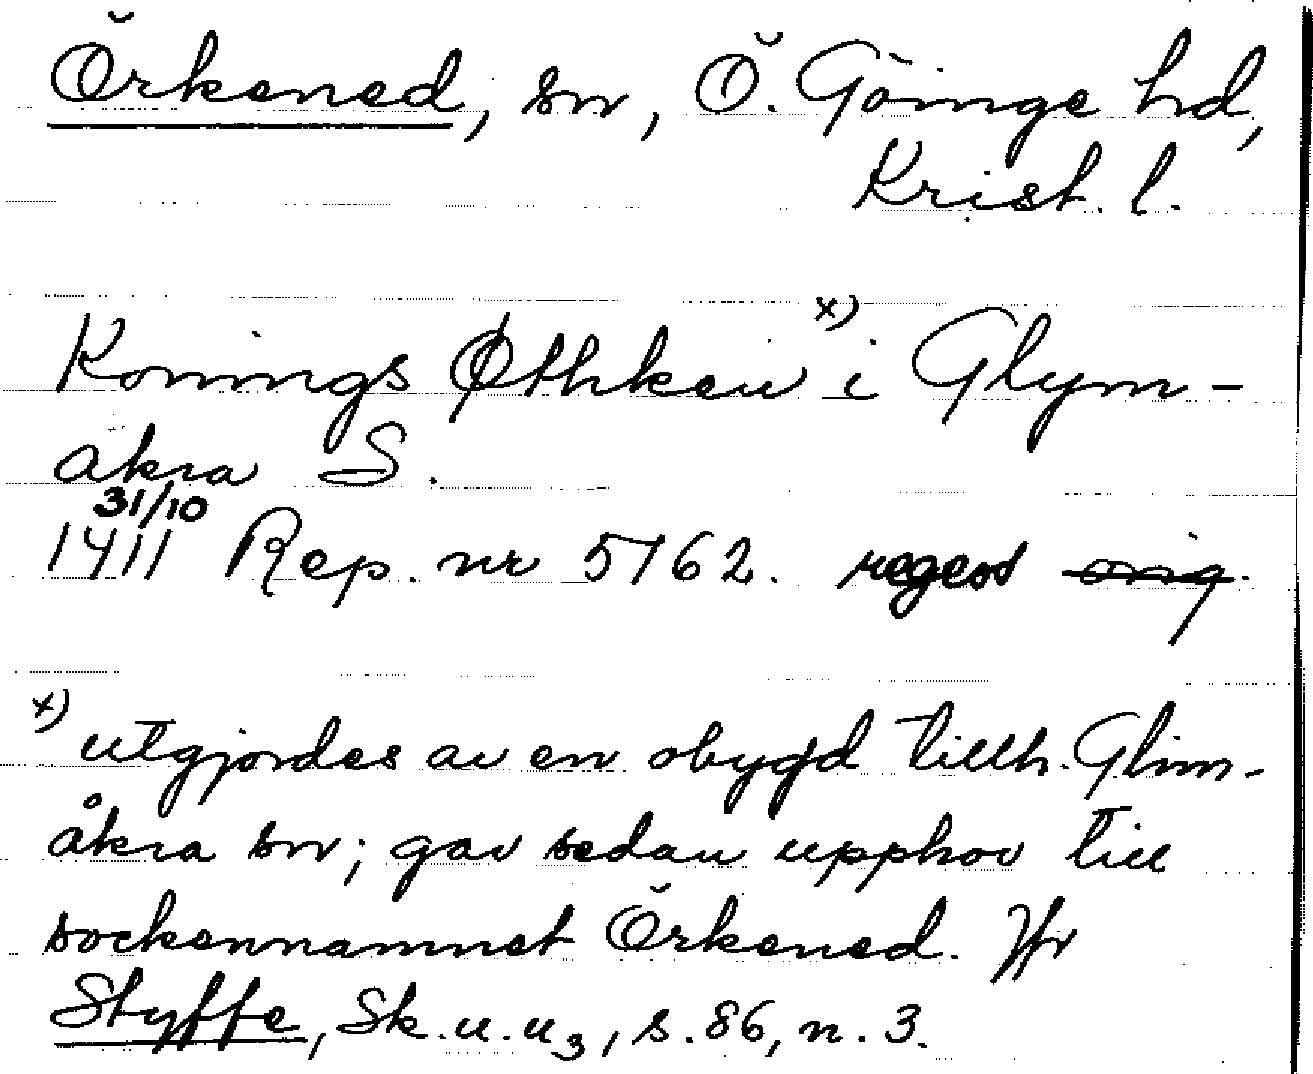 Örkened, sn, Ö. Göinge hd,
Krist. l.
Konings Øthken x) i Glym-
akra S.
31/10
1411 Rep. nr 5162. regest orig.
x) utgjordes av en obygd tillh. Glim-
åkra sn; gav sedan upphov till
sockennamnet Örkened. Jfr
Styffe, Sk.u.u3, s. 86, n. 3.